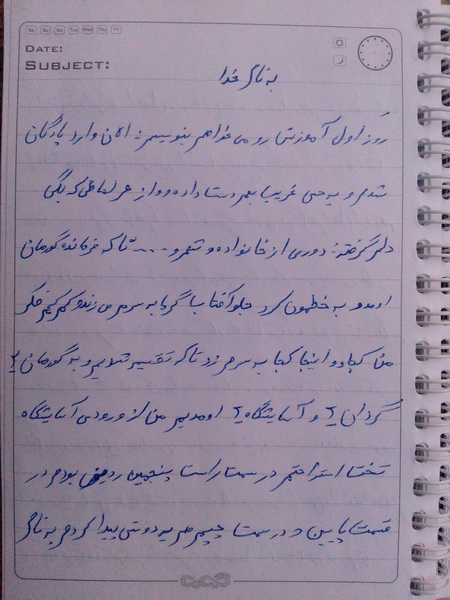 Sa Su Mo Tue Wed Thu Fri
DATE:
SUBJECT:
به نام خدا
روز اول آموزشی رو می خواهم بنویسم: الان وارد پادگان
شدم و یه حس غریب بهم دست داده و از هر لحاظی که بگی
دلم گرفته: دوری از خانواده و شهر و .... تا که فرمانده گروهان
اومد و به خطمون کرد جلو آفتاب گرما به سرم می زند و کم کم فکر
من کجا و اینجا کجا به سرم زد تا که تقسیم شدیم و به گروهان ۲
گردان ۲ و آسایشگاه ۲ اومدیم من از ورودی آسایشگاه
تخت استراحتم در سمت راست پنجمین ردیف بودم در
قسمت پایین و در سمت چپم هم یه دوستی پیدا کردم به نام